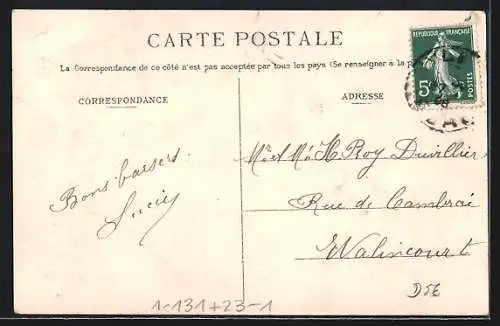 CARTE POSTALE
La Correspondance de ce côté n'est pas acceptée par tous les pays (Se renseigner à la
RÉPUBLIQUE FRANÇAISE
5c
POSTES
CORRESPONDANCE
ADRESSE
Bons baisers
Lucie
Mr et Me H. Roy Duvillier
Rue de Cambrai
Walincourt
1-131+23-1